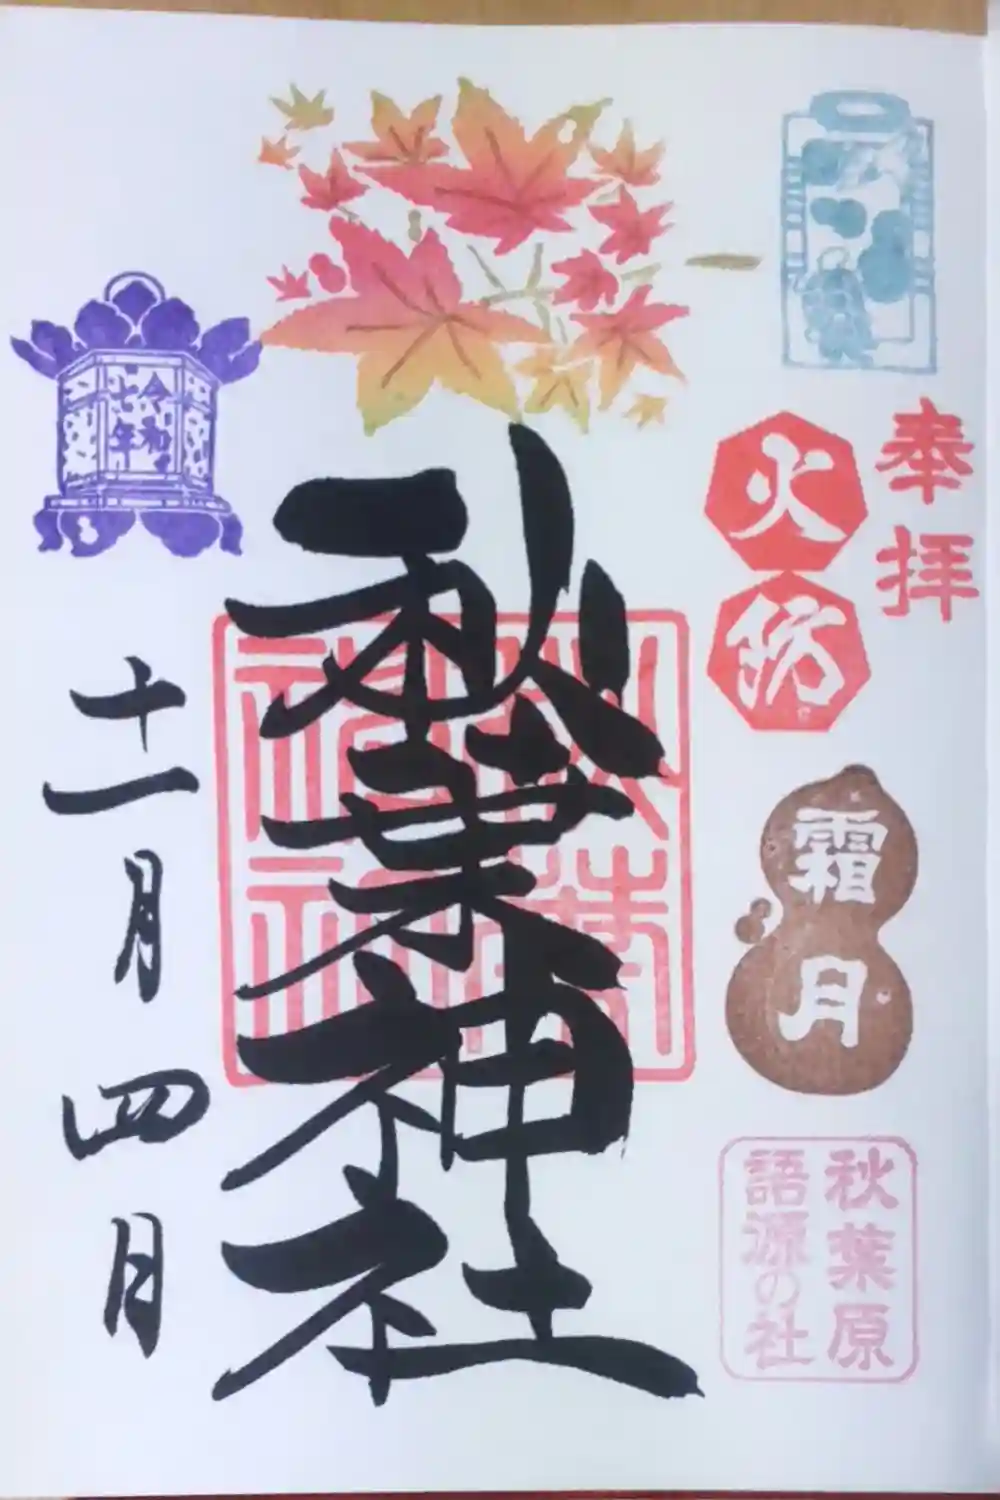 奉拝
火
防
霜月
秋葉原
語源の社
秋葉神社
秋葉
神社
令和
七年
十一月四日